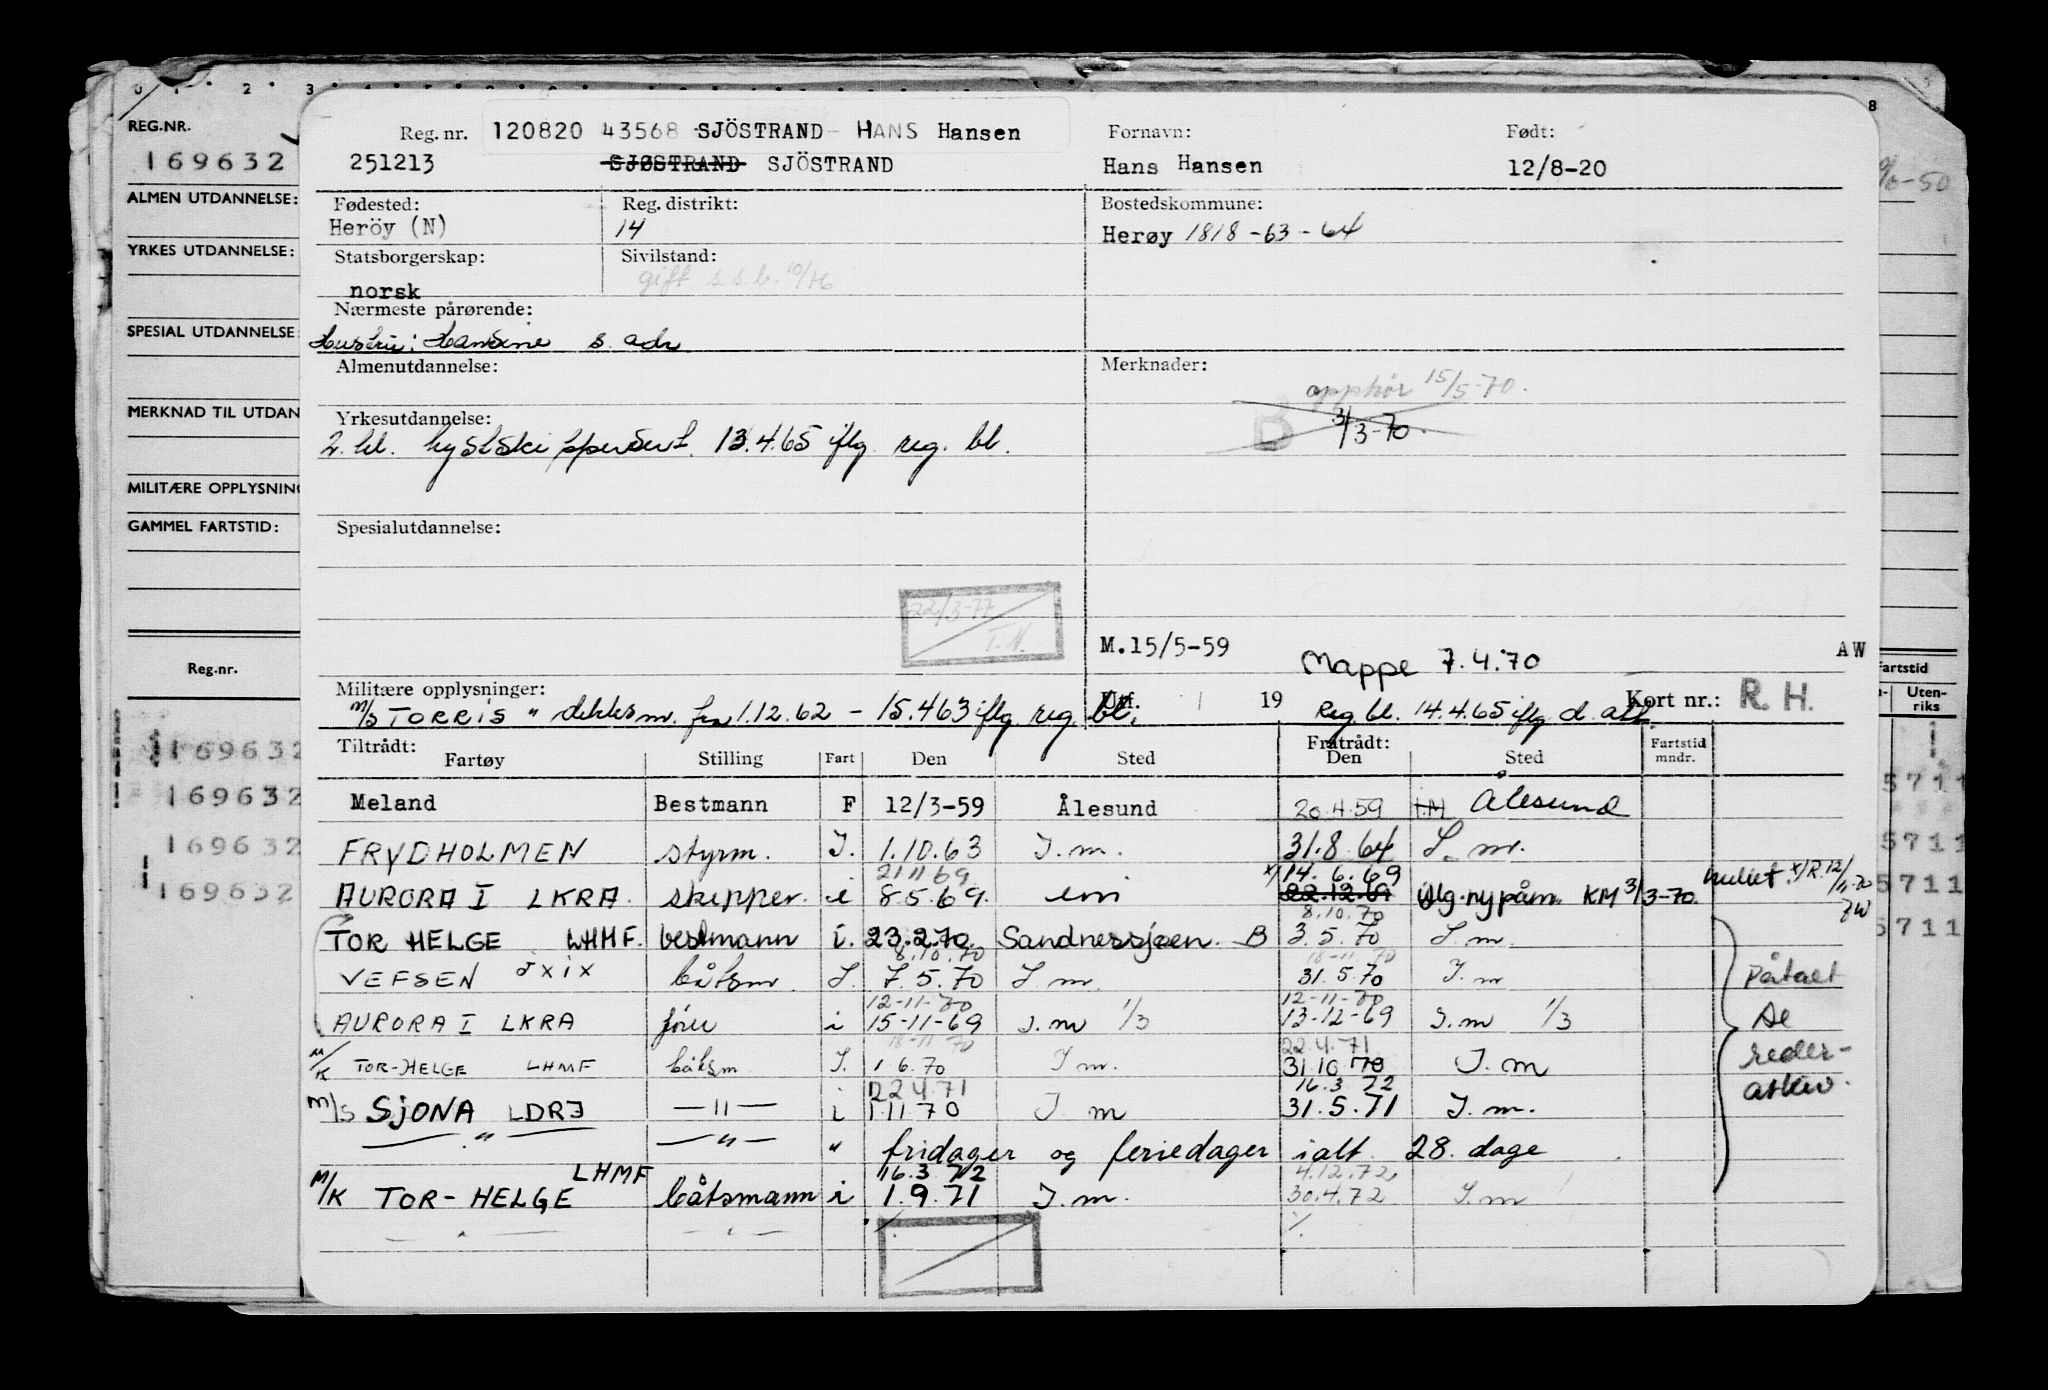 0 1 2 3 8
REG.NR.
169632
ALMEN UTDANNELSE:
YRKES UTDANNELSE:
SPESIAL UTDANNELSE
MERKNAD TIL UTDAN
MILITÆRE OPPLYSNING
GAMMEL FARTSTID:
Reg.nr.
169632
169632
169632
169632
Reg. nr. 120820 43568 SJÖSTRAND HANS Hansen Fornavn: Født:
251213 SJØSTRAND SJÖSTRAND Hans Hansen 12/8-20
Fødested: Reg. distrikt: Bostedskommune:
Heröy (N) 14 Herøy 1818 - 63 - 64
Statsborgerskap: Sivilstand:
norsk gift s.s.b. 10/76
Nærmeste pårørende:
Hustru: Hansine s. adr
Almenutdannelse: Merknader:
opphör 15/5-70.
Yrkesutdannelse: B 3/3-70.
2. kl. kystskippersert. 13.4.65 iflg. reg. bl.
Spesialutdannelse:
22/3-77
T.N.
M.15/5-59 Mappe 7.4.70 AW
Militære opplysninger: Utf. 19 Kort nr.: R. H.
M/S TORRIS " dekksm. fra 1.12.62 - 15.4.63 iflg reg. bl. Reg. bl. 14.4.65 iflg d. att.
Tiltrådt: Fratrådt:
Fartøy Stilling Fart Den Sted Den Sted Fartstid mndr.
Meland Bestmann F 12/3-59 Ålesund 20.4.59 I.M Ålesund
FRYDHOLMEN styrm. I. 1.10.63 I.m. 31.8.64 I.m.
21 11 69 x/ 14.6.69
AURORA I LKRA. skipper. i 8.5.69. 22.12.69 iflg. ny påm. KM 3/3-70.
8.10.70
TOR HELGE LHMF. bestmann i. 23.2.70. Sandnessjøen. B 3.5.70 I.m.
8.10.70 18-11-70
VEFSEN JXIX båtsm. I. 7.5.70 I.m. 31.5.70 I.m
12-11-70 12-11-70
AURORA I LKRA fører i 15-11-69 I.m 1/3 13-12-69 I.m 1/3
18-11 70 22.4.71
M/K TOR-HELGE LHMF båtsm I. 1 6.70 I m. 31.10 70 I. m
22 4.71 16.3 72
M/S SJONA LDRJ — " — i 1.11.70 I. m 31.5.71 I. m.
— " — — " — " fridager og feriedager ialt 28. dage
16.3 72 4.12.72
M/K TOR-HELGE LHMF båtsmann i 1.9.71 I.m. 30.4.72 I.m
Påtalt
reder-
Fartstid
Uten-
riks
5711
5711
5711
5711